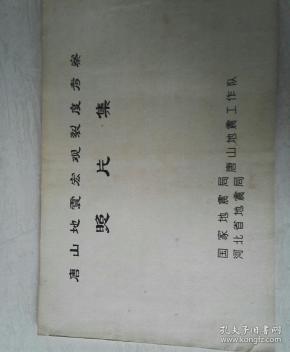 唐山地震宏观裂度考察
照片集
国家地震局
河北省地震局
唐山地震工作队
孔夫子旧书网